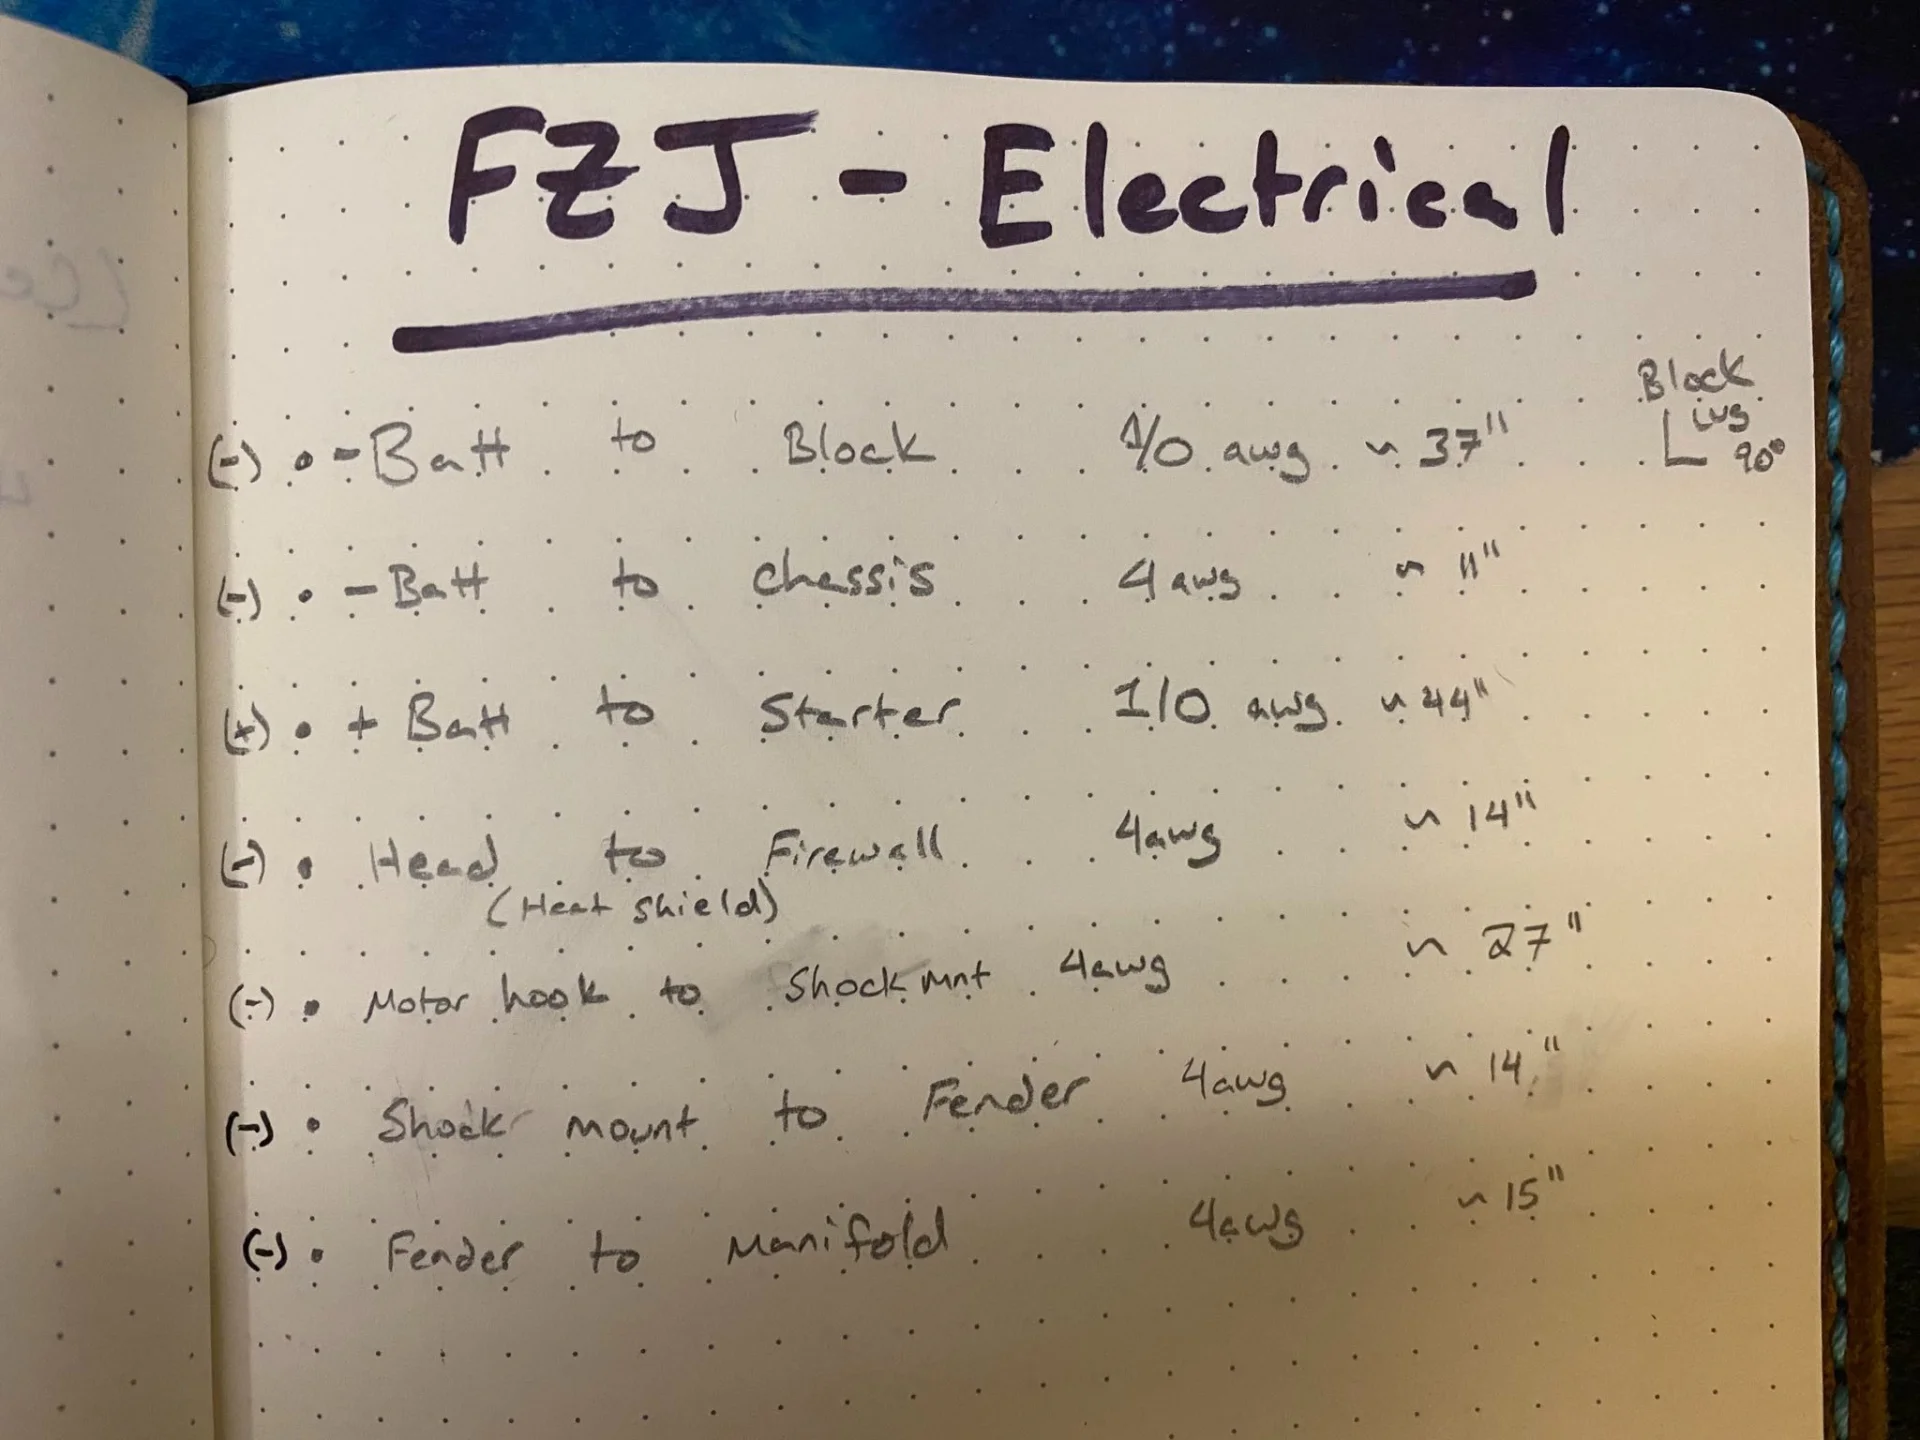 FZJ - Electrical
(-) • - Batt to Block 1/0 awg ~ 37" Block lug 90°
(-) • - Batt to chassis 4 awg ~ 11"
(+) • + Batt to Starter 1/0 awg ~ 44"
(-) • Head to Firewall 4awg ~ 14"
(Heat shield)
(-) • Motor hook to Shock mnt 4awg ~ 27"
(-) • Shock mount to Fender 4awg ~ 14"
(-) • Fender to Manifold 4awg ~ 15"